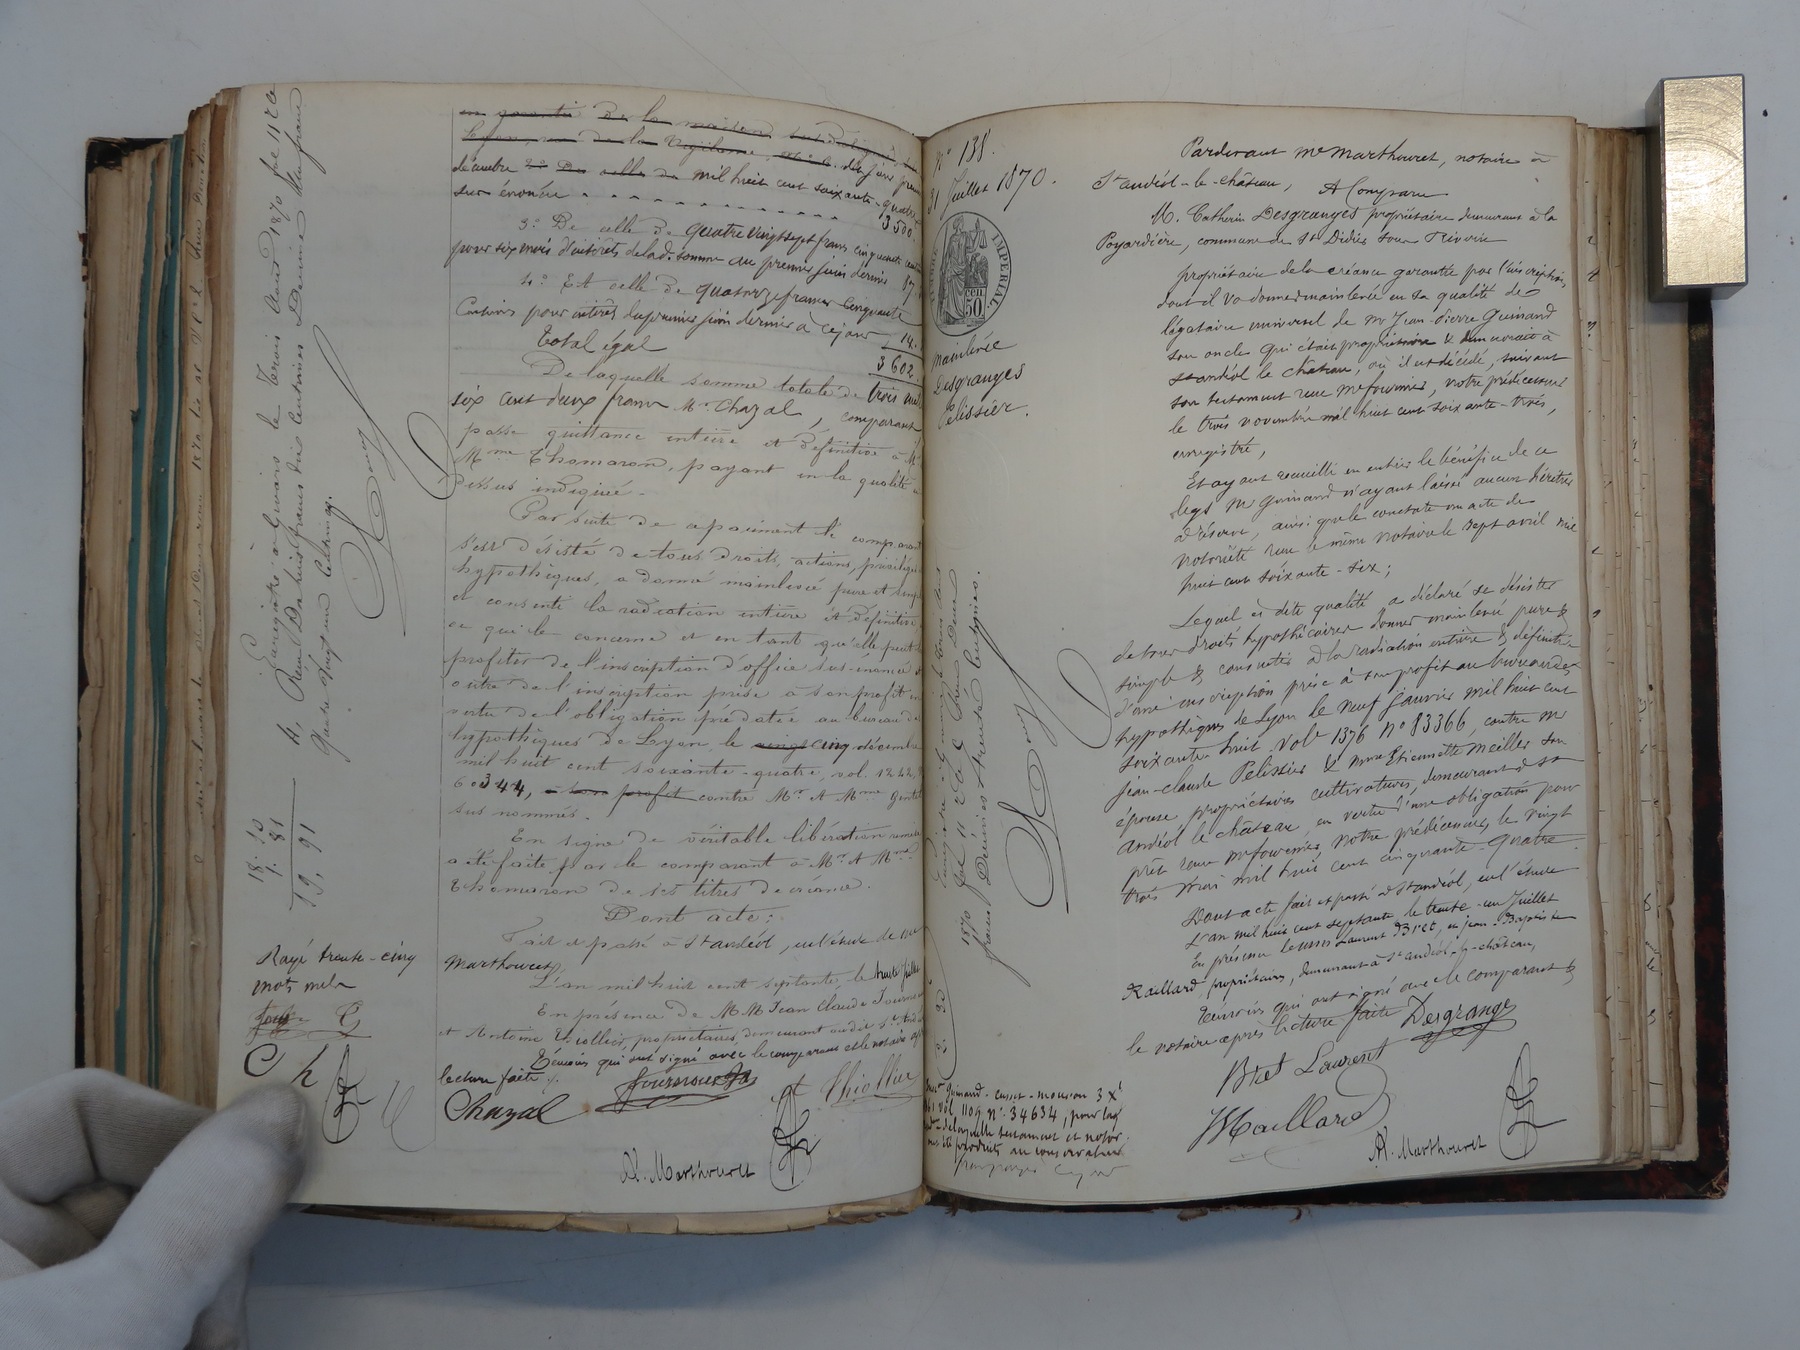 en garantie de la maison sus désignée
Lyon, rue de la Vigilance, n° 6. du jour premier
décembre 2° De celle de mil huit cent soixante-quatre
sus énoncée 3500.
3° De celle de quatre vingt sept francs cinquante
pour six mois d'intérêts de lad. somme au premier juin dernier 87
4° Et celle de quatorze francs cinquante
centimes pour intérêts du premier juin dernier à ce jour 14.
Total égal 3602
De laquelle somme totale de trois mille
six cent deux francs Mr. Chazal, comparant
passe quittance entière et définitive à Mr
Mme Thomaron, payant en la qualité
dessus indiquée.
Par suite de ce paiement le comparant
s'est désisté de tous droits, actions, privilèges
hypothèques, a donné mainlevée pure et simple
et consenti la radiation entière et définitive
ce qui le concerne et en tant qu'elle peut
profiter de l'inscription d'office sus-énoncée
outre de l'inscription prise à son profit en
vertu de l'obligation prédatée au bureau des
hypothèques de Lyon, le vingt cinq décembre
mil huit cent soixante-quatre, vol. 1222,
60344, à son profit contre Mr et Mme
sus nommés.
En signe de véritable libération remise
a été faite par le comparant à Mr et Mme
Thomaron de ses titres de créance.
Dont acte:
Fait et passé à St andéol, en l'étude de me
Marthouret,
L'an mil huit cent septante, le trente Juillet
En présence de MM. Jean Claude
et Antoine Thiollier, propriétaires, demeurant audit St. Andéol
Témoins qui ont signé avec le comparant et le notaire après
lecture faite.
Chazal
Thiollier
A. Marthouret
Enregistré à Givors le Trois Août 1870 fol 11
Reçu Dix huit francs dix centimes Décime
quatre vingt un centimes.
18. 10
1. 81
19, 91
Rayé trente-cinq
mots nuls
Ch
N° 138.
31 Juillet 1870.
TIMBRE IMPÉRIAL
50 cen
mainlevée
Desgranges
Pelissier.
Pardevant Me Marthouret, notaire à
St andéol-le-château, A Comparu
M. Catherin Desgranges propriétaire demeurant à la
Poyardière, commune de St Didier sous Riverie
propriétaire de la créance garantie par l'inscription
dont il va donner mainlevée en sa qualité de
légataire universel de Mr Jean-Pierre Guinand
son oncle qui était propriétaire & demeurait à
St andéol le château, où il est décédé, suivant
son testament reçu Me fournier, notre prédécesseur
le trois novembre mil huit cent soixante-trois,
enregistré,
Et ayant recueilli en entier le bénéfice de ce
legs Mr Guinand n'ayant laissé aucun héritier
à réserve, ainsi que le constate un acte de
notoriété reçu le même notaire le sept avril mil
huit cent soixante-six;
Lequel ès dite qualité a déclaré se désister
de tous droits hypothécaires donner mainlevée pure &
simple & consentir à la radiation entière & définitive
d'une inscription prise à son profit au bureau des
hypothèques de Lyon le neuf Janvier mil huit cent
soixante-huit vol. 1376 N° 83366, contre Mr
Jean-Claude Pelissier & Mme Etiennette Meiller son
épouse propriétaires cultivateurs, demeurant à St
Andéol le château, en vertu d'une obligation pour
prêt reçue Me fournier notre prédécesseur, le vingt
trois mai mil huit cent cinquante-quatre.
Dont acte fait et passé à St andéol, en l'étude
L'an mil huit cent septante le trente-un Juillet
En présence de MMrs Laurent Bret, et Jean-Baptiste
Raillard, propriétaires, demeurant à St andéol-le-château,
Témoins qui ont signé avec le comparant &
le notaire après lecture faite Desgranges
Bret Laurent
A. Marthouret